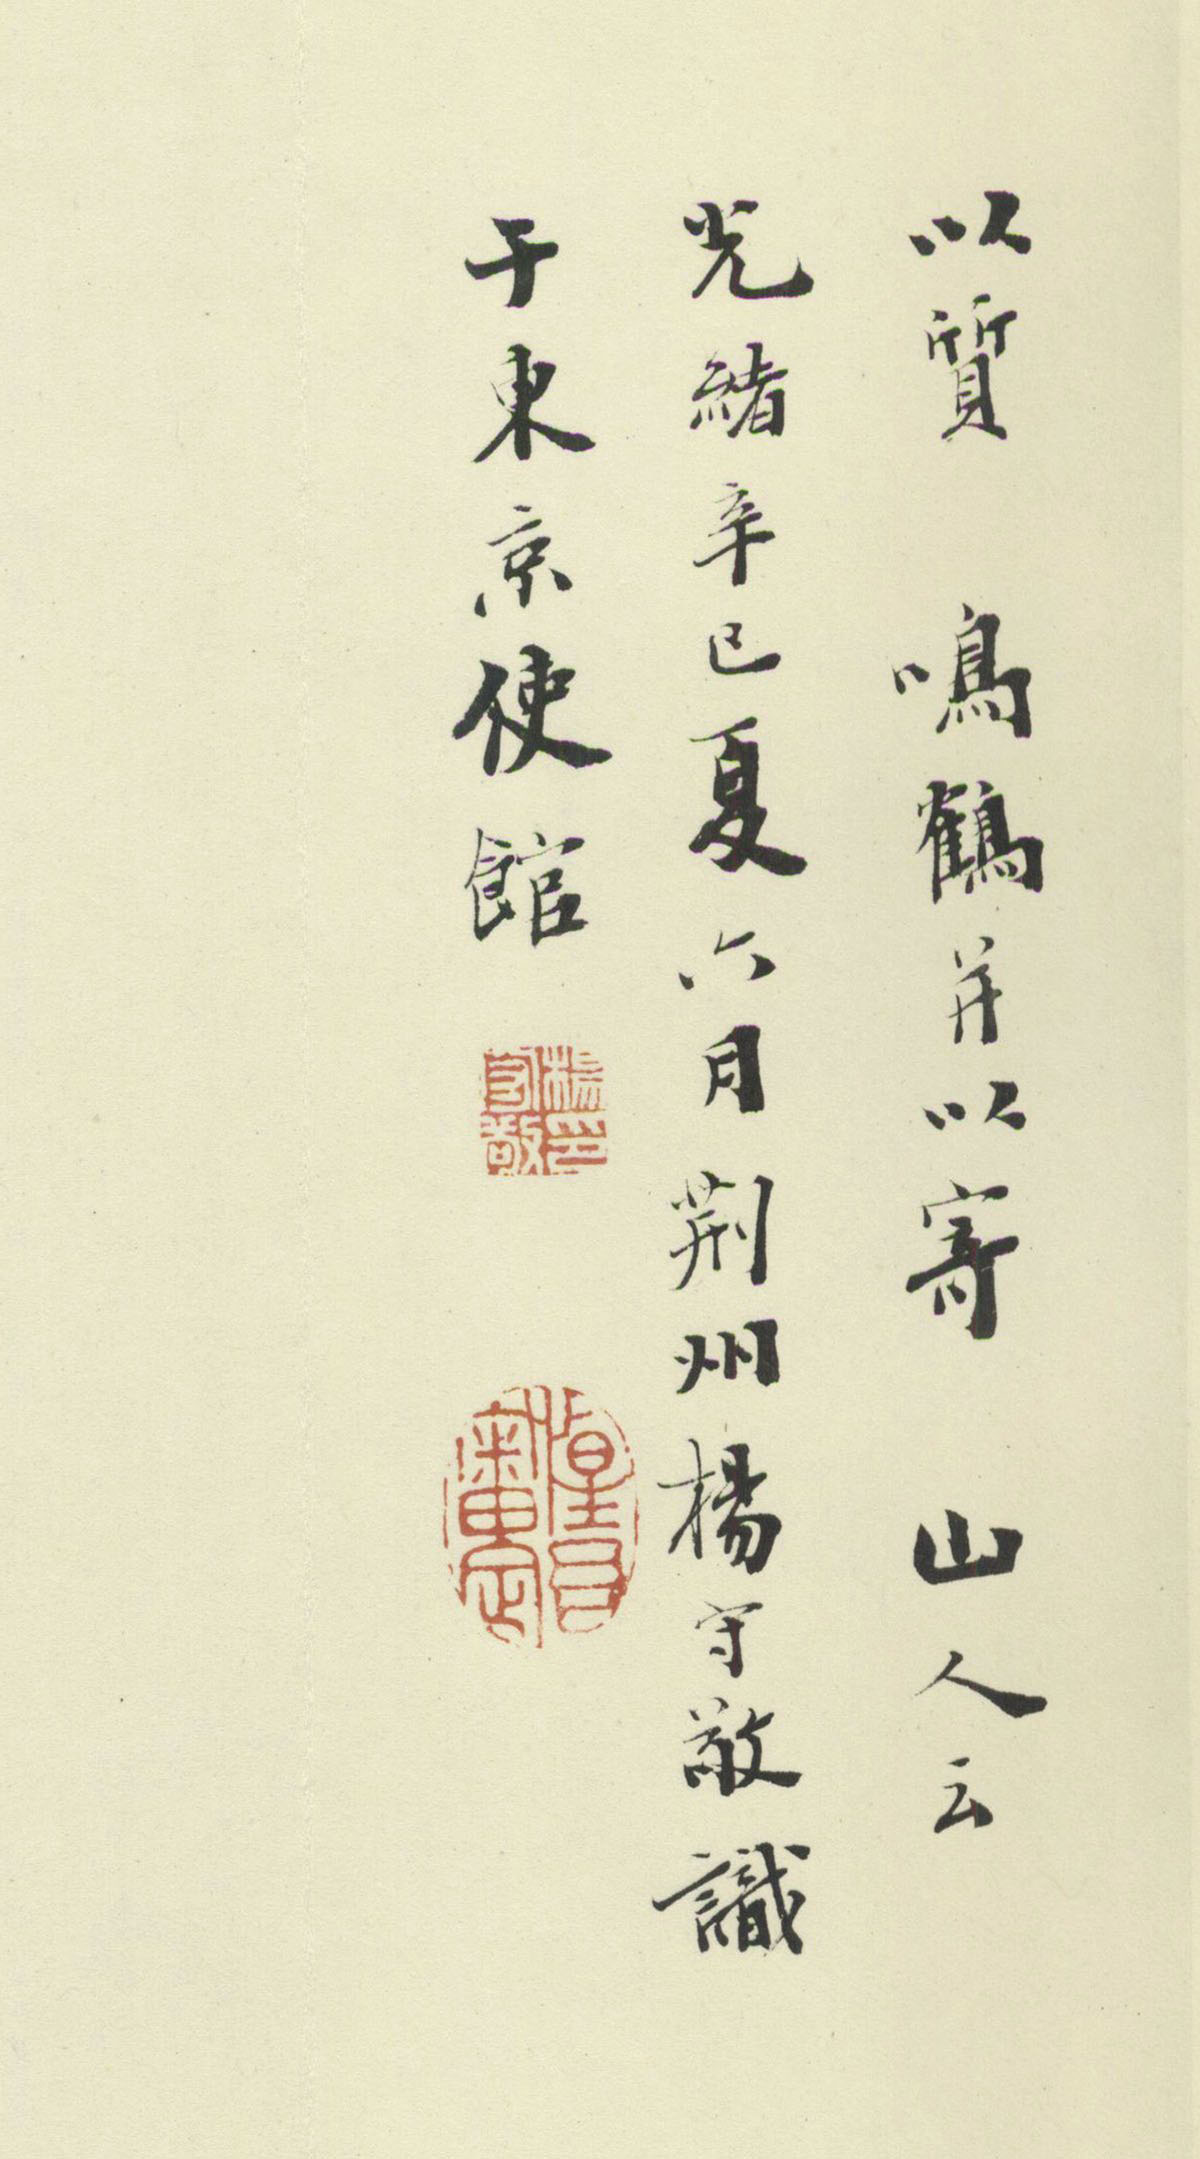 以質 鳴鶴并以寄 山人云
光緒辛巳夏六月荆州楊守敬識
于東京使館
楊守敬印